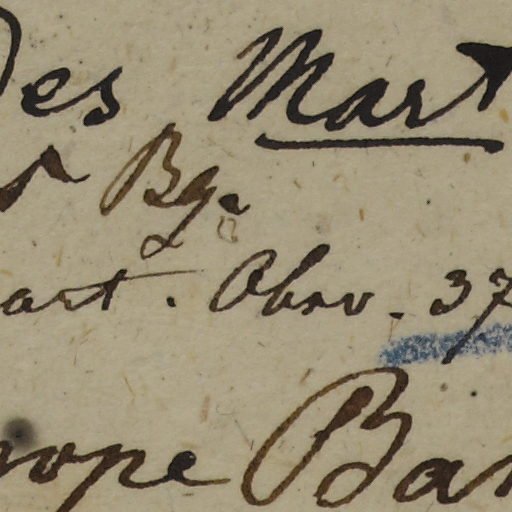 Des Mart
Bge
art. Obsv. 37
rope Bar